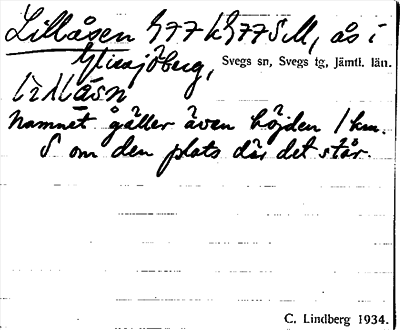 Lillåsen 577 h 577 S M, ås i
Glissjöberg,
Svegs sn, Svegs tg, Jämtl. län.
Namnet gäller även höjden 1 km.
S om den plats där det står.
C. Lindberg 1934.